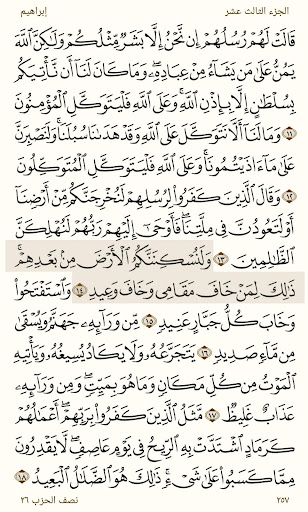 الجزء الثالث عشر
إبراهيم
قَالَتْ لَهُمْ رُسُلُهُمْ إِن نَّحْنُ إِلَّا بَشَرٌ مِّثْلُكُمْ وَلَٰكِنَّ ٱللَّهَ
يَمُنُّ عَلَىٰ مَن يَشَآءُ مِنْ عِبَادِهِۦ ۖ وَمَا كَانَ لَنَآ أَن نَّأْتِيَكُم
بِسُلْطَٰنٍ إِلَّا بِإِذْنِ ٱللَّهِ ۚ وَعَلَى ٱللَّهِ فَلْيَتَوَكَّلِ ٱلْمُؤْمِنُونَ
١١ وَمَا لَنَآ أَلَّا نَتَوَكَّلَ عَلَى ٱللَّهِ وَقَدْ هَدَىٰنَا سُبُلَنَا ۚ وَلَنَصْبِرَنَّ
عَلَىٰ مَآ ءَاذَيْتُمُونَا ۚ وَعَلَى ٱللَّهِ فَلْيَتَوَكَّلِ ٱلْمُتَوَكِّلُونَ
١٢ وَقَالَ ٱلَّذِينَ كَفَرُوا۟ لِرُسُلِهِمْ لَنُخْرِجَنَّكُم مِّنْ أَرْضِنَآ
أَوْ لَتَعُودُنَّ فِى مِلَّتِنَا ۖ فَأَوْحَىٰٓ إِلَيْهِمْ رَبُّهُمْ لَنُهْلِكَنَّ
ٱلظَّٰلِمِينَ ١٣ وَلَنُسْكِنَنَّكُمُ ٱلْأَرْضَ مِنۢ بَعْدِهِمْ ۚ
ذَٰلِكَ لِمَنْ خَافَ مَقَامِى وَخَافَ وَعِيدِ ١٤ وَٱسْتَفْتَحُوا۟
وَخَابَ كُلُّ جَبَّارٍ عَنِيدٍ ١٥ مِّن وَرَآئِهِۦ جَهَنَّمُ وَيُسْقَىٰ
مِن مَّآءٍ صَدِيدٍ ١٦ يَتَجَرَّعُهُۥ وَلَا يَكَادُ يُسِيغُهُۥ وَيَأْتِيهِ
ٱلْمَوْتُ مِن كُلِّ مَكَانٍ وَمَا هُوَ بِمَيِّتٍ ۖ وَمِن وَرَآئِهِۦ
عَذَابٌ غَلِيظٌ ١٧ مَّثَلُ ٱلَّذِينَ كَفَرُوا۟ بِرَبِّهِمْ ۖ أَعْمَٰلُهُمْ
كَرَمَادٍ ٱشْتَدَّتْ بِهِ ٱلرِّيحُ فِى يَوْمٍ عَاصِفٍ ۖ لَّا يَقْدِرُونَ
مِمَّا كَسَبُوا۟ عَلَىٰ شَىْءٍ ۚ ذَٰلِكَ هُوَ ٱلضَّلَٰلُ ٱلْبَعِيدُ ١٨
٢٥٧
نصف الحزب ٢٦